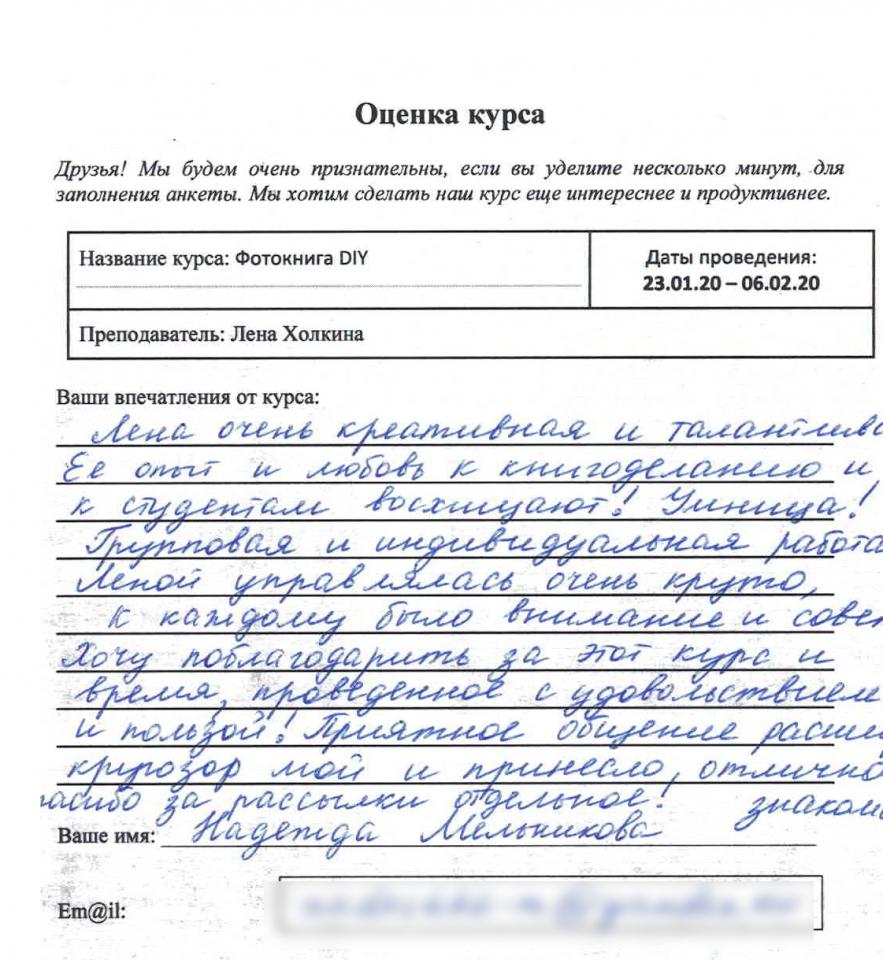 Оценка курса
Друзья! Мы будем очень признательны, если вы уделите несколько минут, для
заполнения анкеты. Мы хотим сделать наш курс еще интереснее и продуктивнее.
Название курса: Фотокнига DIY
Даты проведения:
23.01.20 – 06.02.20
Преподаватель: Лена Холкина
Ваши впечатления от курса:
Лена очень креативная и талантлива
Ее опыт и любовь к книгоделанию и
к студентам восхищают! Умница!
Групповая и индивидуальная работа
Леной управлялась очень круто,
К каждому было внимание и сове
Хочу поблагодарить за этот курс и
время, проведенное с удовольствием
и пользой! Приятное общение расши
кргрозор мой и принесло, отлично
асибо за рассылки отдельное! знаком
Ваше имя: Надежда Мельникова
Em@il: